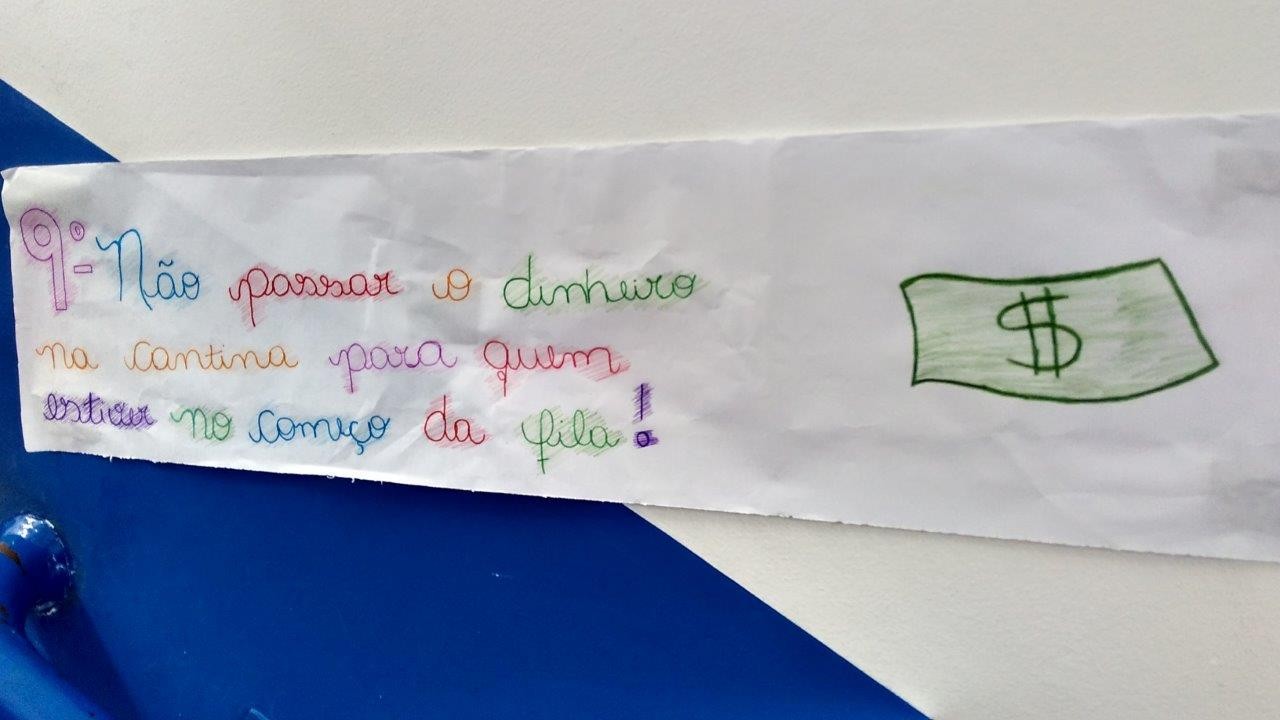 9º- Não passar o dinheiro
na cantina para quem
estiver no começo da fila!
$